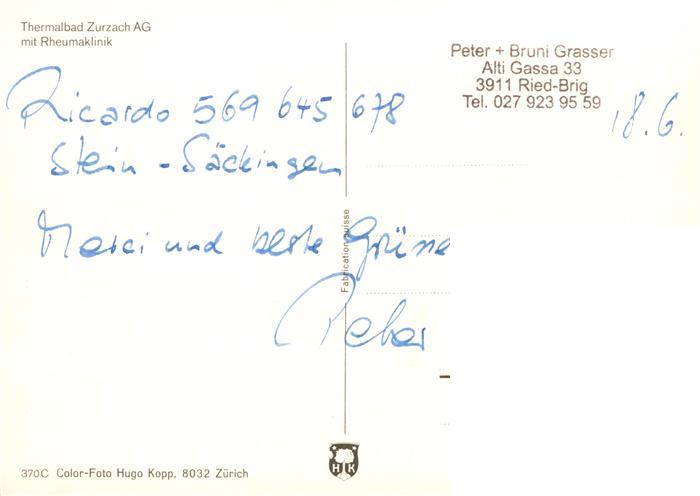 Thermalbad Zurzach AG
mit Rheumaklinik
Peter + Bruni Grasser
Alti Gassa 33
3911 Ried-Brig
Tel. 027 923 95 59
18.6.
Ricardo 569 645 678
Stein - Säckingen
Merci und beste Grüsse
Peter
Fabrication suisse
370C Color-Foto Hugo Kopp, 8032 Zürich
HK